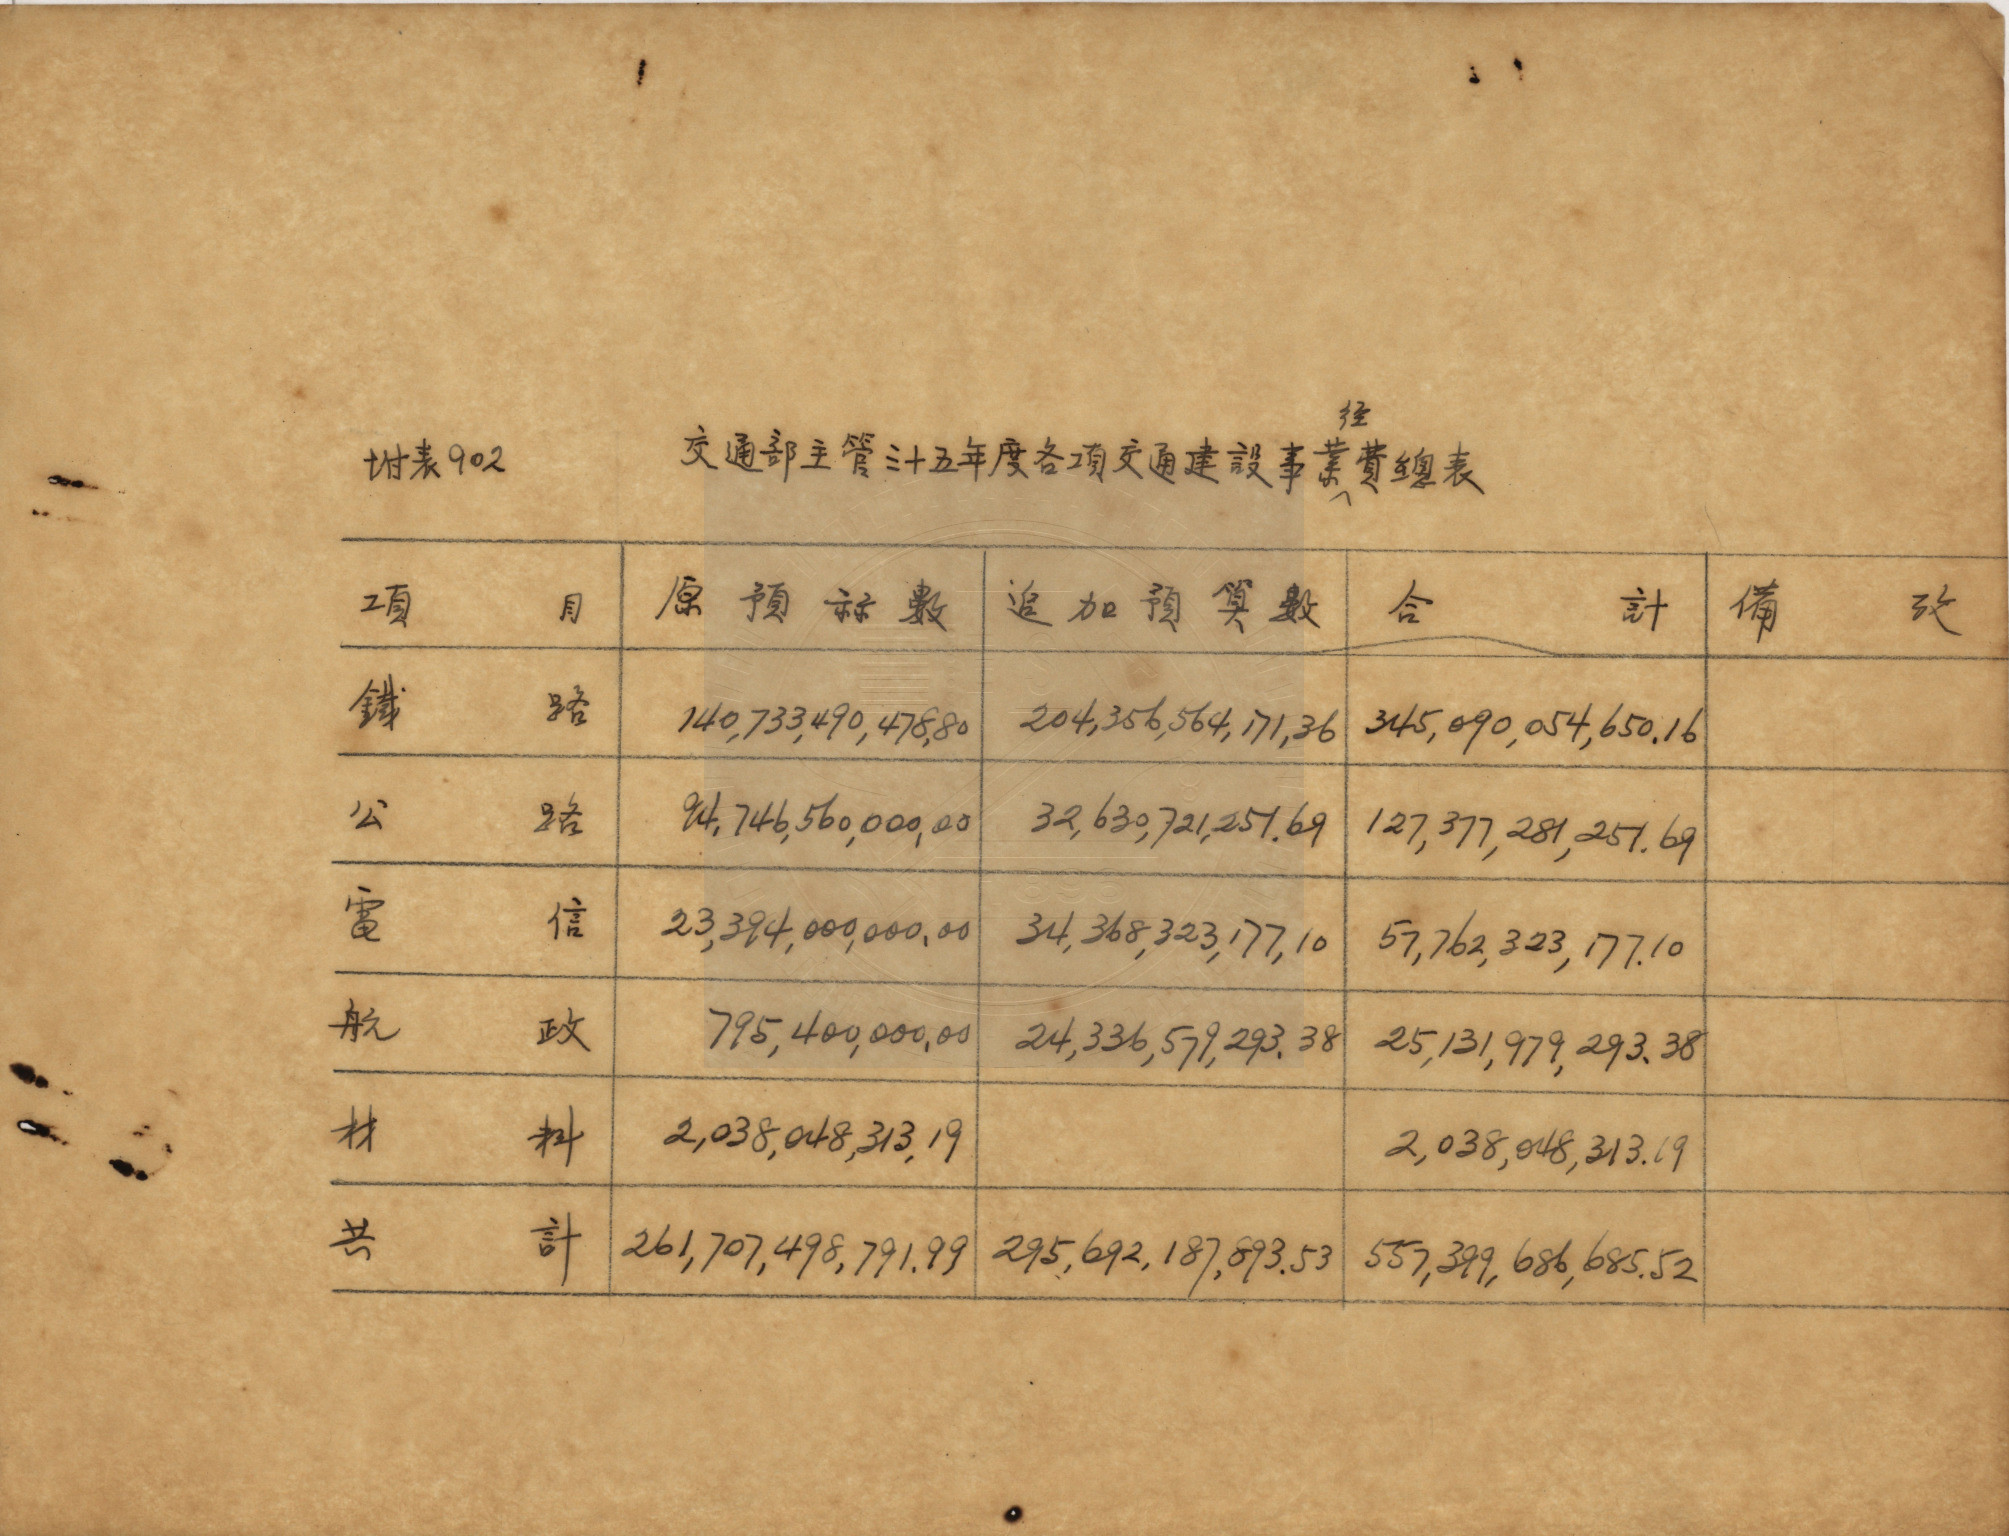 附表902 交通部主管三十五年度各項交通建設事業径費總表
項目 原預祘數 追加預算數 合計 備攷
鐵路 140,733,490,478,80 204,356,564,171,36 345,090,054,650.16
公路 94,746,560,000,00 32,630,721,251.69 127,377,281,251.69
電信 23,394,000,000.00 34,368,323,177,10 57,762,323,177.10
航政 795,400,000,00 24,336,579,293.38 25,131,979,293.38
材料 2,038,048,313,19 2,038,048,313.19
共計 261,707,498,791.99 295,692,187,893.53 557,399,686,685.52